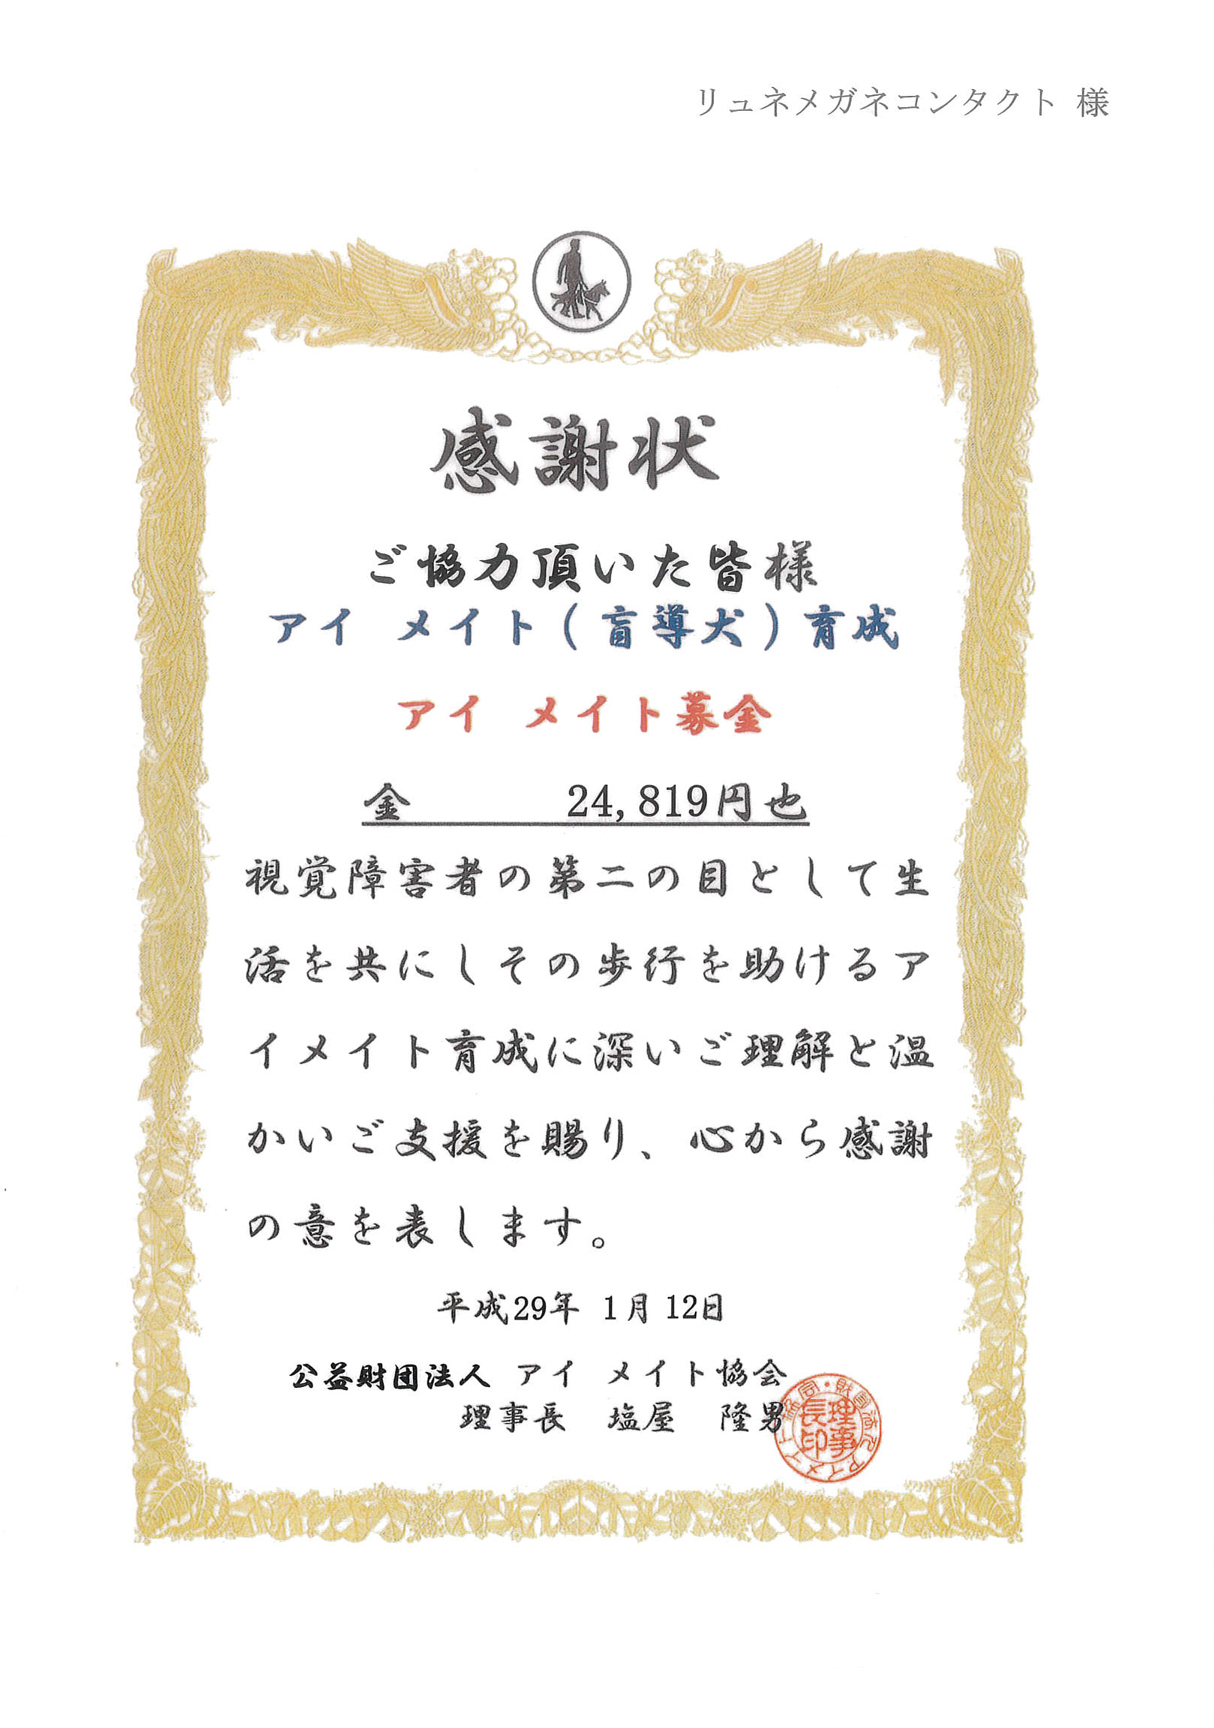 リュネメガネコンタクト 様
感謝状
ご協力頂いた皆様
アイ メイト(盲導犬)育成
アイ メイト募金
金 24,819円也
視覚障害者の第二の目として生
活を共にしその歩行を助けるア
イメイト育成に深いご理解と温
かいご支援を賜り、心から感謝
の意を表します。
平成29年 1月 12日
公益財団法人 アイ メイト協会
理事長 塩屋 隆男
理事
長印